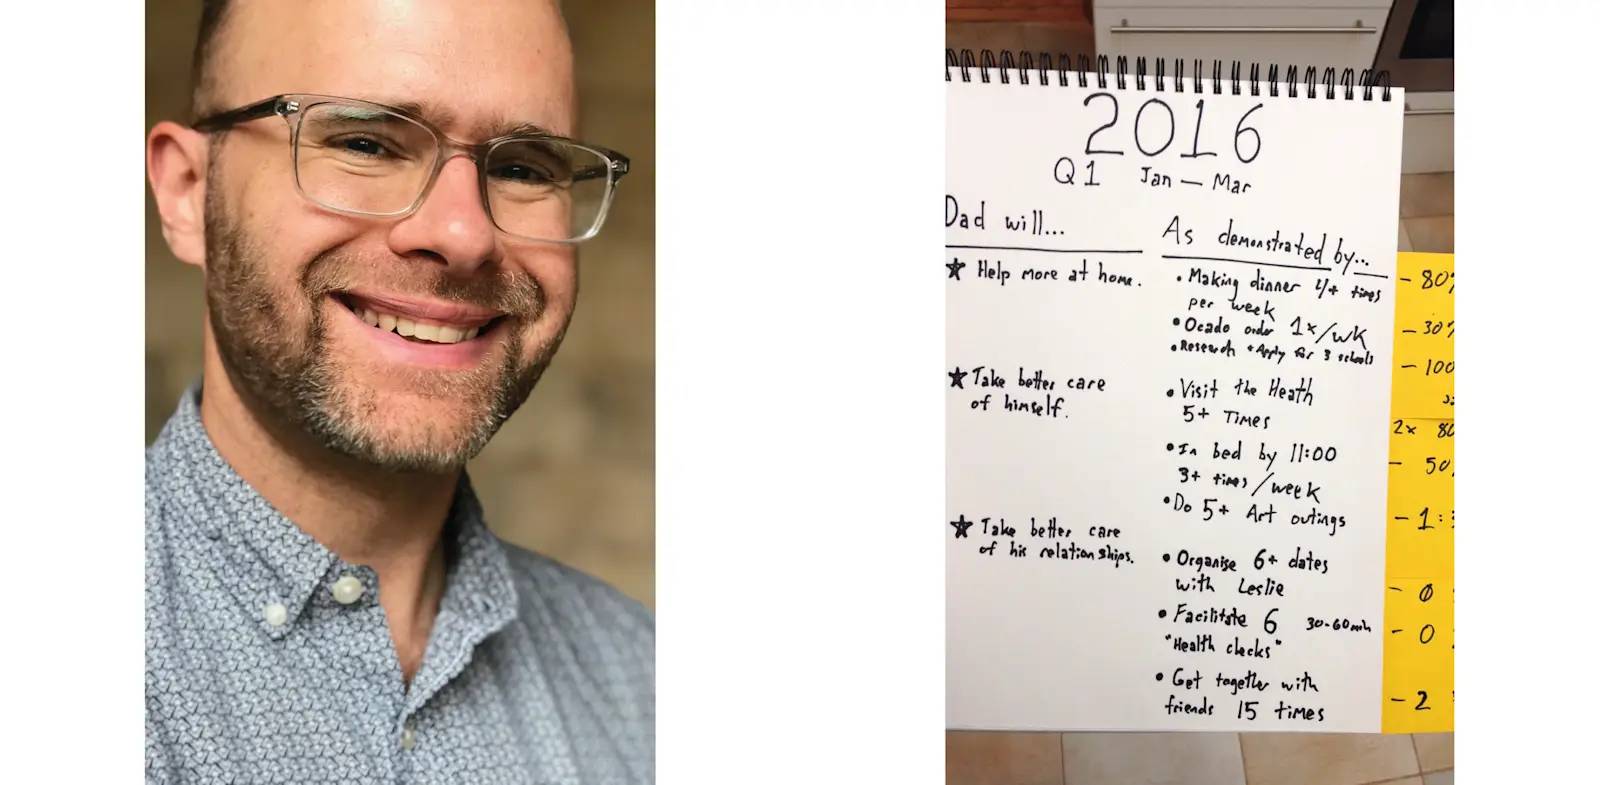 2016
Q1 Jan — Mar
Dad will...
As demonstrated by...
★ Help more at home.
• Making dinner 4+ times
per week
• Ocado order 1x/wk
• Research + Apply for 3 schools
★ Take better care
of himself.
• Visit the Heath
5+ Times
• In bed by 11:00
3+ times/week
• Do 5+ Art outings
★ Take better care
of his relationships.
• Organise 6+ dates
with Leslie
• Facilitate 6 30-60 min
"Health checks"
• Get together with
friends 15 times
- 80%
- 30%
- 100
2x 80
- 50%
- 1:
- 0
- 0
- 2